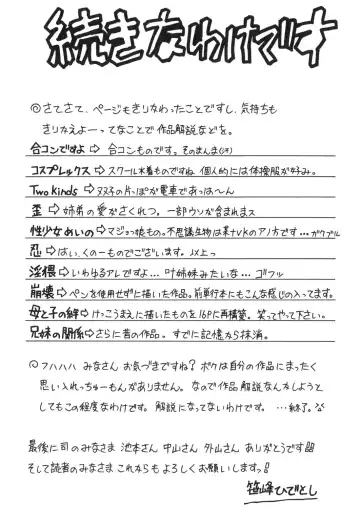 続きなわけです
◎さてさて、ページもきりなわったことですし、気持ちも
きりなえよーってなことで作品解説などを。
合コンですよ⇨合コンものです。そのまんま(汗)
コスプレックス⇨スクール水着ものですね。個人的には体操服が好み。
Two Kinds⇨ヌメ子の片っぽが電車であっは〜ん
歪⇨姉弟の愛がさくれつ。一部ウソが含まれまス
性少女めいの⇨マジョっ娘もの。不思議生物は某ナVKのアノ方です…ガクブル
忍⇨はい、くのーものでございます。以上っ
淫猥⇨いわゆるアレですよ…叶姉妹みたいな…ゴフッ
崩壊⇨ペンを使用せずに描いた作品。前単行本にもこんな感じの入ってます。
母と子の絆⇨けっこうまえに描いたものを16Pに再構築。笑ってやって下さい。
兄妹の関係⇨さらに昔の作品。すでに記憶から抹消。
◎フハハハ みなさん お気づきですね?ボクは自分の作品にまったく
思い入れっちゅーもんがありません。なので作品解説なんかしようと
してもこの程度なわけです。解説になってないわけです。…終了。
最後に司のみなさま 池本さん 中山さん 外山さん ありがとうです!!!
そして読者のみなさま これからも よろしくお願いしますっ!
笹峰ひでとし